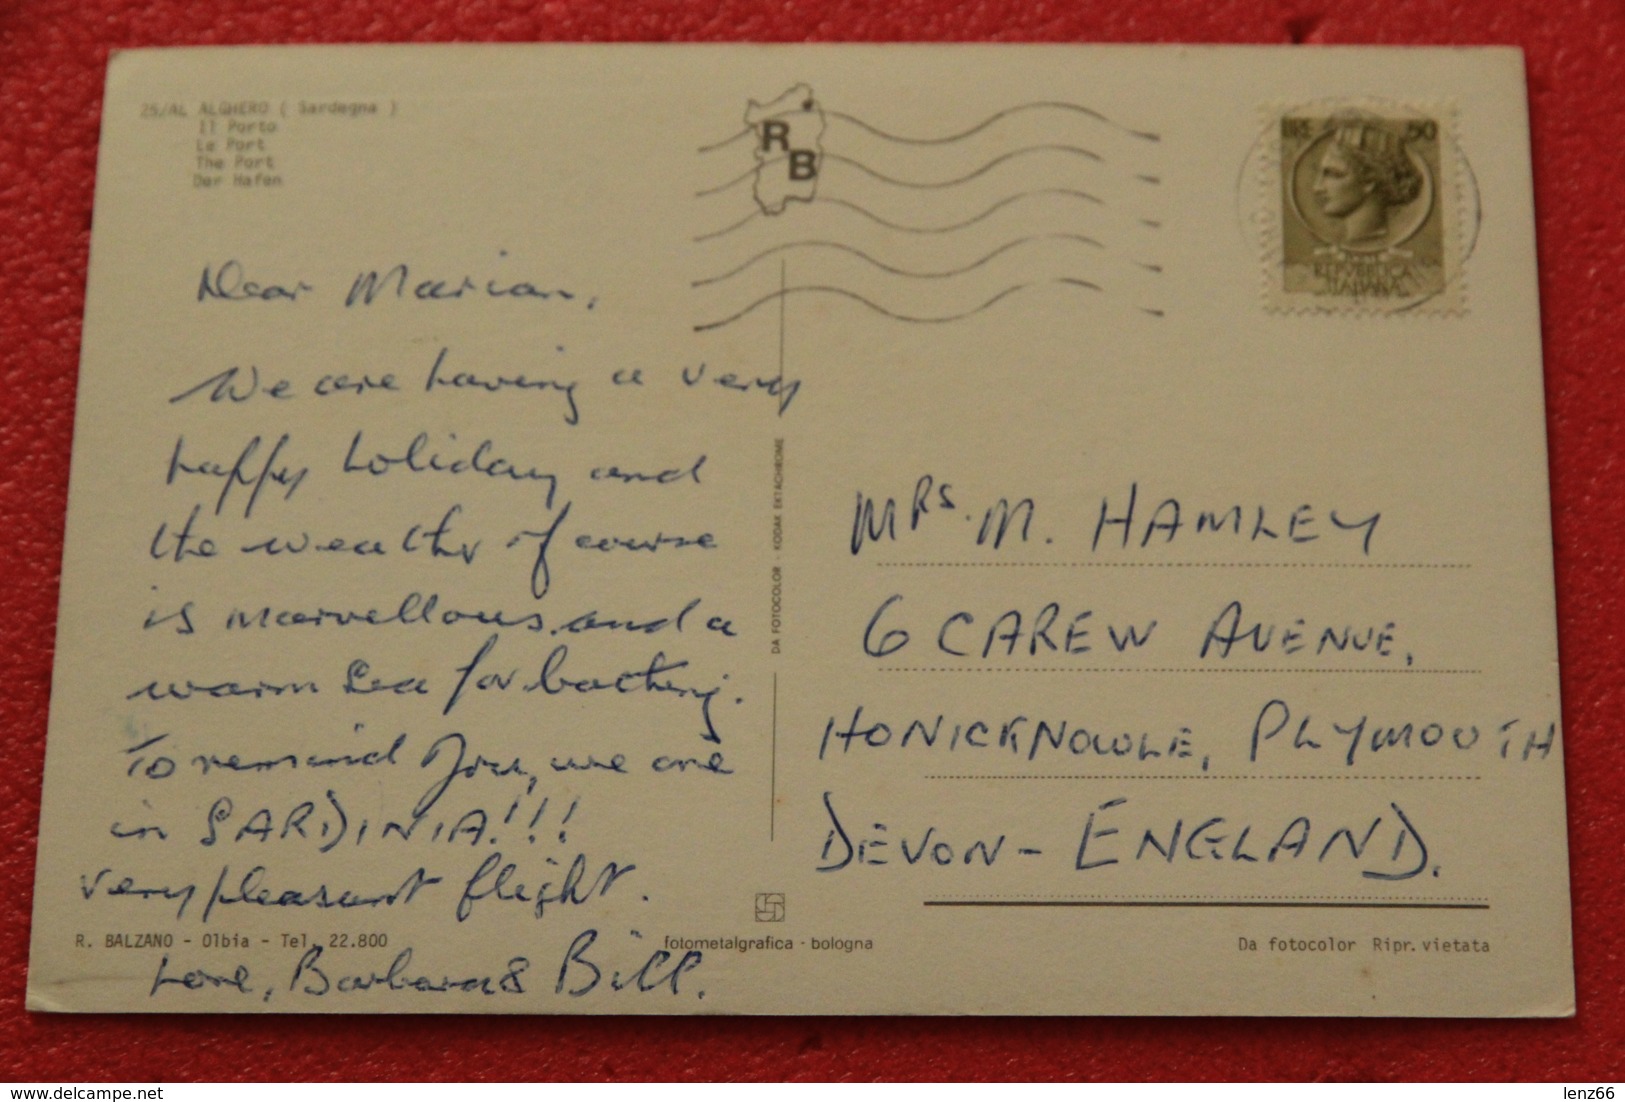 25/AL ALGHERO ( Sardegna )
Il Porto
Le Port
The Port
Der Hafen
R
B
LIRE 50
REPVBBLICA
ITALIANA
Dear Marian,
We are having a very
happy holiday and
the weather of course
is marvellous and a
warm sea for bathing.
To remind you, we are
in SARDINIA!!!
very pleasant flight.
Love, Barbara & Bill.
DA FOTOCOLOR - KODAK EKTACHROME
MRS. M. HAMLEY
6 CAREW AVENUE,
HONICKNOWLE, PLYMOUTH
DEVON - ENGLAND.
R. BALZANO - Olbia - Tel. 22.800
fotometalgrafica - bologna
Da fotocolor Ripr. vietata
delcampe.net
lenz66